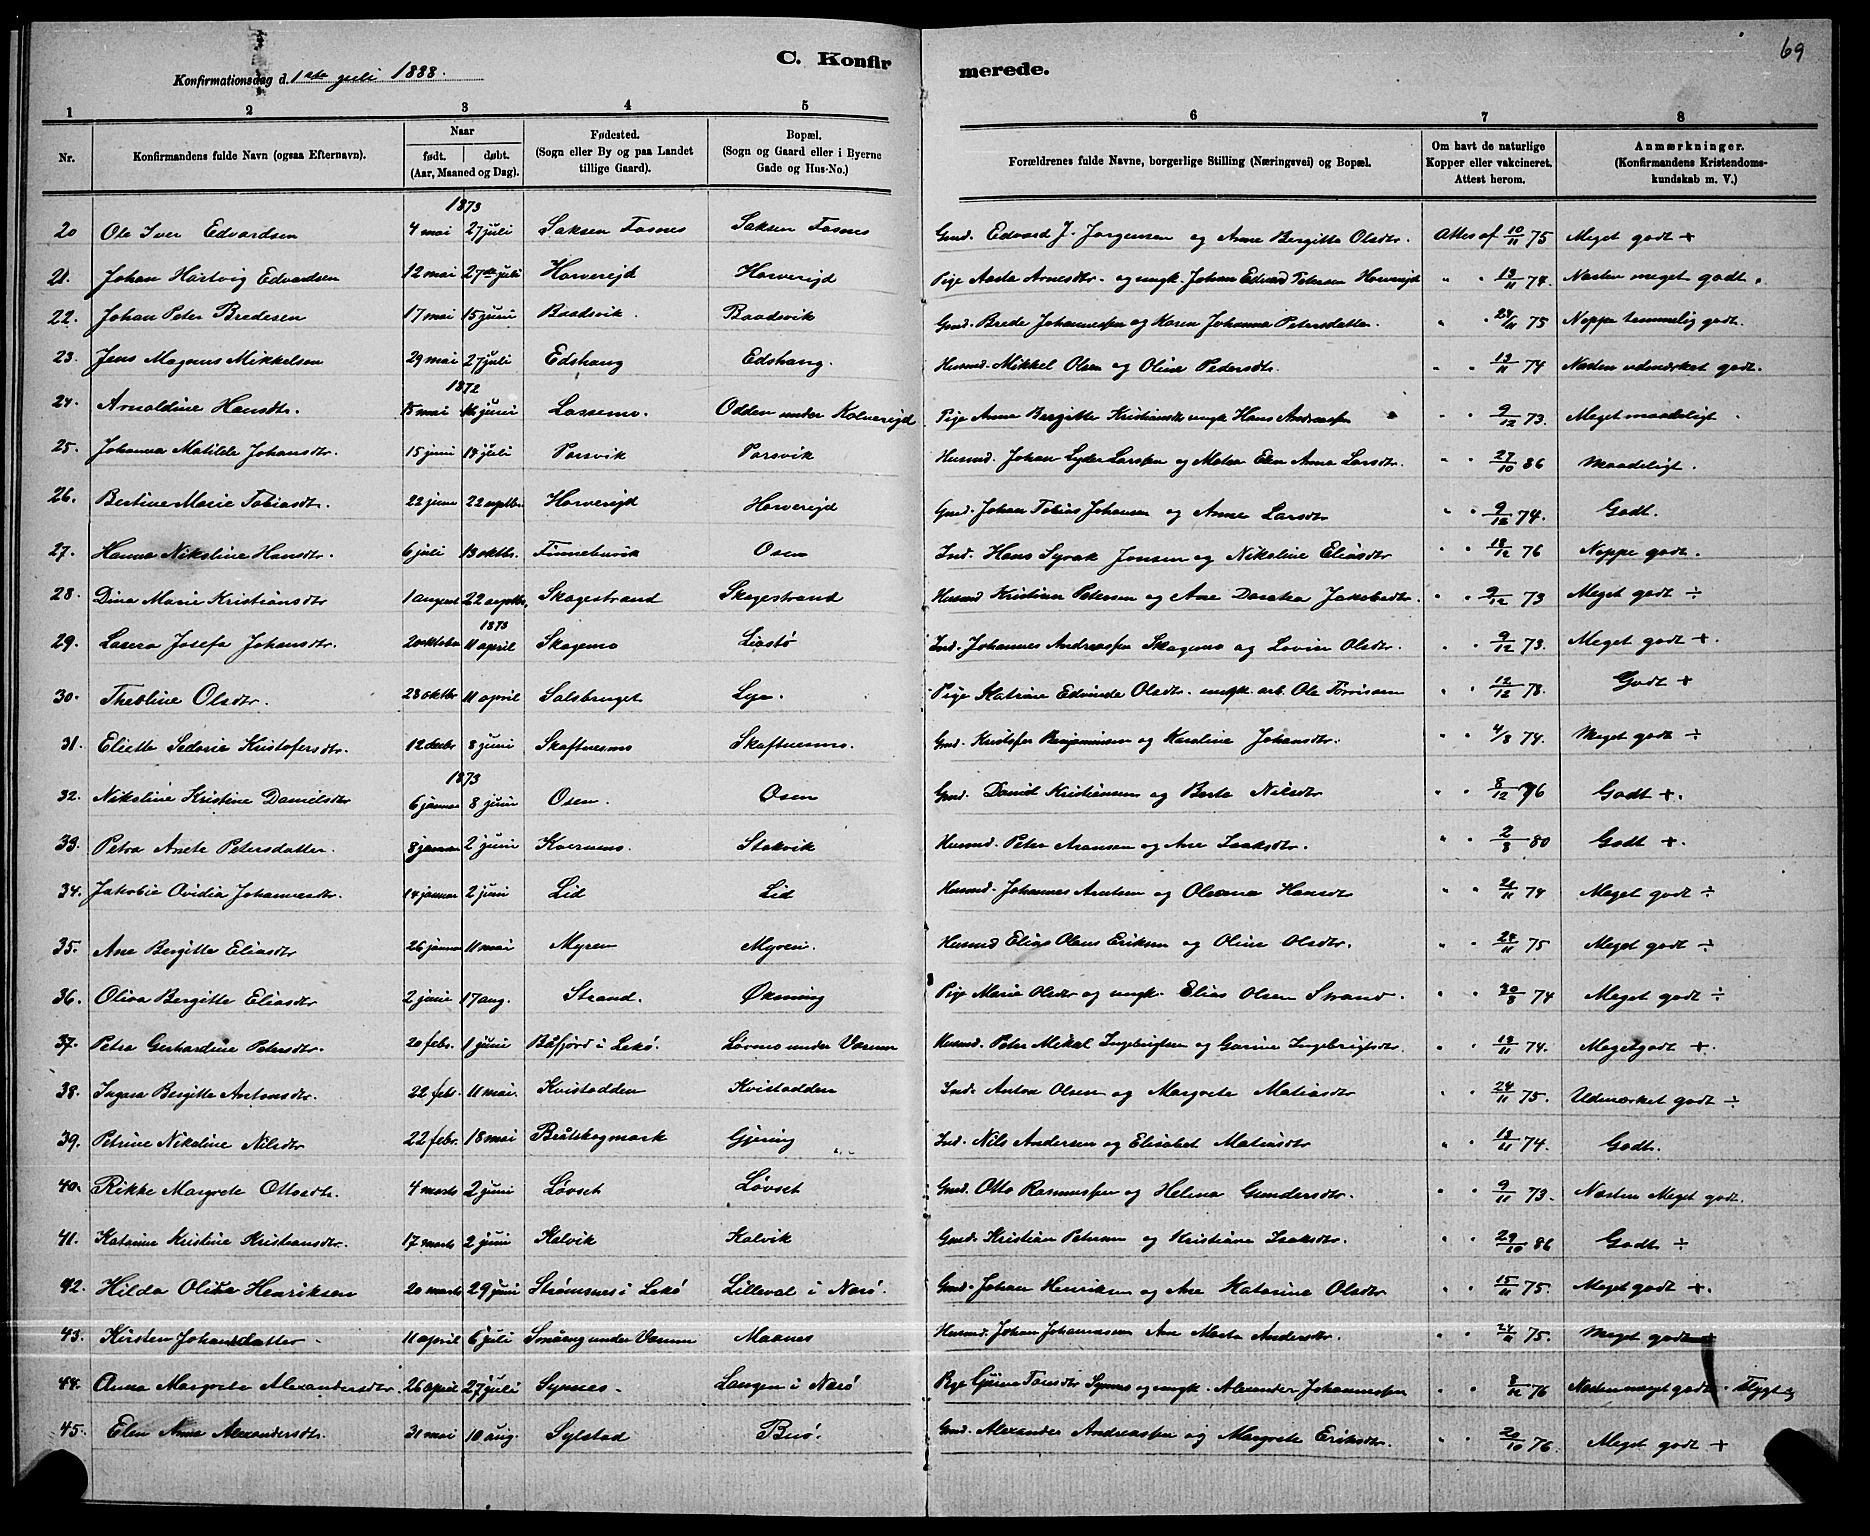 69
C. Konfirmerede.
Konfirmationsdag d. 1ste juli 1888.
1 2 3 4 5 6 7 8
Nr. Konfirmandens fulde Navn (ogsaa Efternavn). Naar født. døbt. (Aar, Maaned og Dag). Fødested. (Sogn eller By og paa Landet tillige Gaard). Bopæl. (Sogn og Gaard eller i Byerne Gade og Hus-No.) Forældrenes fulde Navne, borgerlige Stilling (Næringsvei) og Bopæl. Om havt de naturlige Kopper eller vakcineret. Attest herom. Anmærkninger. (Konfirmandens Kristendomskundskab m. V.)
1873
20 Ole Iver Edvardsen 4 mai 27 juli Saksen Fosnes Saksen Fosnes Gmd. Edvard J. Jørgensen og Anne Bergitte Olsdtr. Attes af 10/11 75 Meget godt +
21. Johan Hartvig Edvardsen 12 mai 27de juli Horvereid Horvereid Pige Aasta Arnesdtr. og ungk. Johan Edvard Petersen Horvereid " " 13/11 74. Næsten meget godt.
22. Johan Peter Bredesen 17 mai 15 juni Baadsvik. Baadsvik Gmd. Brede Johannessen og Karen Johanna Petersdatter. " " 24/11 75 Neppe temmelig godt.
23. Jens Magnus Mikkelsen 29 mai 27 juli Edshaug Edshaug. Husmd. Mikkel Olsen og Oline Pedersdtr. " " 13/11 74 Næsten udmærket godt.
1872
24. Arnoldine Hansdtr. 15 mai 14 juni Lassemo. Odden under Kolvereid Pige Anne Bergitte Kristiansdtr ungk Hans Andreassen " " 9/12 73. Meget maadeligt
25. Johanna Matilde Johansdtr. 15 juni 18 juli Porsvik Porsvik Husmd. Johan Lyder Larssen og Elen Anna Larsdtr. " " 27/10 86 Maadeligt.
26. Bertine Marie Tobiasdtr. 22 juni 22 septbr. Horvereid Horvereid Gmd. Johan Tobias Johansen og Anne Larsdtr " " 9/12 74. Godt.
27. Hanna Nikoline Hansdtr. 6 juli 13 oktbr. Finnebuvik Osen Ind. Hans Syrak Jonsen og Nikoline Eliasdtr " " 18/12 76 Neppe godt.
28. Dina Marie Kristiansdtr 1 august 22 septbr. Skagestrand Skagestrand Husmd Kristian Petersen og Ane Dorotea Jakobsdtr. " " 9/12 73 Meget godt ÷
1873
29. Laura Josefa Johansdtr. 20 oktober 11 april Skagemo Liastø Ind. Johannes Andreassen Skagemo og Lovise Olsdtr. " " 9/12 73. Meget godt +.
30. Theoline Olsdtr. 28 oktbr 11 april Salsbruget Lye. Pige Katrine Edvinda Olsdtr. ungk. arb. Ole Torrissen " " 12/12 78. Godt +
31. Eliette Sedovie Kristofersdtr. 12 decbr 8 juni Skaftnesmo Skaftnesmo. Gmd. Kristofer Benjaminsen og Karoline Johansdtr. " " 4/8 74. Meget godt ÷
1873
32. Nikoline Kristine Danielsdtr 6 januar 8 juni Osen. Osen Gmd. Daniel Kristiansen og Berta Nilsdtr " " 8/12 76 Godt +.
33. Petra Anete Petersdatter. 8 januar 2 juni Kvernmo. Stakvik Husmd. Peter Aronsen og Ane Isaksdtr. " " 2/8 80 Godt +.
34. Jakobie Ovidia Johannesdtr. 14 januar 2 juni Lid Lid Husmd. Johannes Arntsen og Oleana Hansdtr " " 20/11 74 Meget godt ÷
35. Ane Bergitte Eliasdtr 26 januar 11 mai Myren Myren. Husmd Elias Olaus Eriksen og Oline Olsdtr. " " 24/11 75 Meget godt ÷
36. Oliva Bergitte Eliasdtr 2 juni 17 aug. Strand. Øksning Pige Marie Olsdtr og ungk. Elias Olsen Strand. " " 30/8 74 Meget godt ÷
37. Petra Gerhardine Petersdtr. 20 febr. 1 juni Båfjord i Lekø. Løvmo under Værum Husmd. Peter Mikal Ingebrigtsen og Gurine Ingebrigtsdtr. " " 13/11 74. Meget godt +.
38. Ingera Bergitte Antonsdtr. 22 febr. 11 mai. Kvistadden Kvistadden Ind. Anton Olsen og Margrete Matiasdtr " " 24/11 75. Udmærket godt ÷
39. Petrine Nikoline Nilsdtr 22 febr. 18 mai Bråtskogmark Gjøring Ind. Nils Andersen og Elisabet Matiasdtr " " 13/11 74. Godt.
40. Rikke Margrete Ottosdtr. 4 marts 2 juni Løvset Løvset Gmd. Otto Rasmussen og Helena Gundersdtr. " " 9/11 73. Næsten Meget godt.
41. Katrine Kristine Kristiansdtr. 17 marts 2 juni Kalvik Kalvik Gmd. Kristian Petersen og Kristiane Isaksdtr. " " 29/10 86 Godt ÷
42. Hilda Oliva Henriksen 20 marts 29 juni Strømsnes i Lekø Lilleval i Nærø. Gmd. Johan Henriksen og Ane Katarina Olsdtr " " 15/11 75. Meget godt +.
43. Kirsten Johansdatter 11 april 6 juli Småeng under Værum Maanes Husmd. Johan Johannessen Ane Marta Andersdtr. " " 24/11 75. Meget godt +
44. Anna Margrete Alexandersdtr. 26 april 27 juli Synnes. Langen i Nærø Pige Gjine Toresdtr Synnes og ungk. Alexander Johannessen " " 8/12 76 Næsten meget godt. Flygtig
45. Elen Anna Alexandersdtr. 31 mai 10 aug. Sylstad Buø. Gmd. Alexander Andreassen og Margrete Eriksdtr. " " 20/10 76. Meget godt +